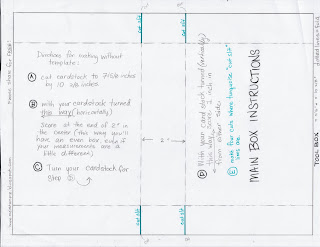 cut slit
cut slit
Directions for making without
template:
A cut cardstock to 7 5/8 inches
by 10 2/8 inches
B With your cardstock turned
this way (horizontally)
Score at the end of 2" in
the center (this way you'll
have an even box, even if
your measurements are a
little different)
C Turn your cardstock for
Step D
2"
D With your card stock turned (vertically)
this way, score 1 inch in
from either side.
E make four cuts where turquoise "cut slit"
lines are.
MAIN BOX INSTRUCTIONS
cut slit
cut slit
TOOL BOX
dotted lines = fold